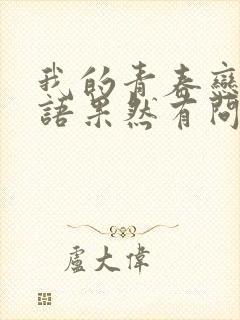 我的青春戀
語果然有問
盧大偉